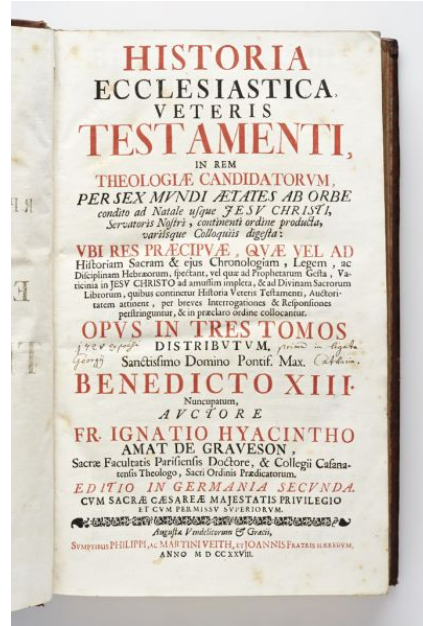 HISTORIA
ECCLESIASTICA
VETERIS
TESTAMENTI,
IN REM
THEOLOGIÆ CANDIDATORVM,
PER SEX MVNDI ÆTATES AB ORBE
condito ad Natale usque JESV CHRISTI,
Servatoris Nostri, continenti ordine producta,
variisque Colloquiis digesta:
VBI RES PRÆCIPVÆ, QVÆ VEL AD
Historiam Sacram & ejus Chronologiam, Legem, ac
Disciplinam Hebræorum, spectant, vel quæ ad Prophetarum Gesta, Va-
ticinia in JESV CHRISTO ad amussim impleta, & ad Divinam Sacrorum
Librorum, quibus continetur Historia Veteris Testamenti, Auctori-
tatem attinent, per breves Interrogationes & Responsiones
perstringuntur, & in præclaro ordine collocantur.
OPVS IN TRES TOMOS
DISTRIBVTVM,
Sanctissimo Domino Pontif. Max.
BENEDICTO XIII.
Nuncupatum,
AVCTORE
FR. IGNATIO HYACINTHO
AMAT DE GRAVESON,
Sacræ Facultatis Parisiensis Doctore, & Collegii Casana-
tensis Theologo, Sacri Ordinis Prædicatorum.
EDITIO IN GERMANIA SECVNDA.
CVM SACRÆ CÆSAREÆ MAJESTATIS PRIVILEGIO
ET CVM PERMISSV SVPERIORVM.
Augustæ Vindelicorum & Græcii,
SVMPTIBUS PHILIPPI, AC MARTINI VEITH, ET JOANNIS FRATRIS HÆREDVM,
ANNO M D CC XXVIII.